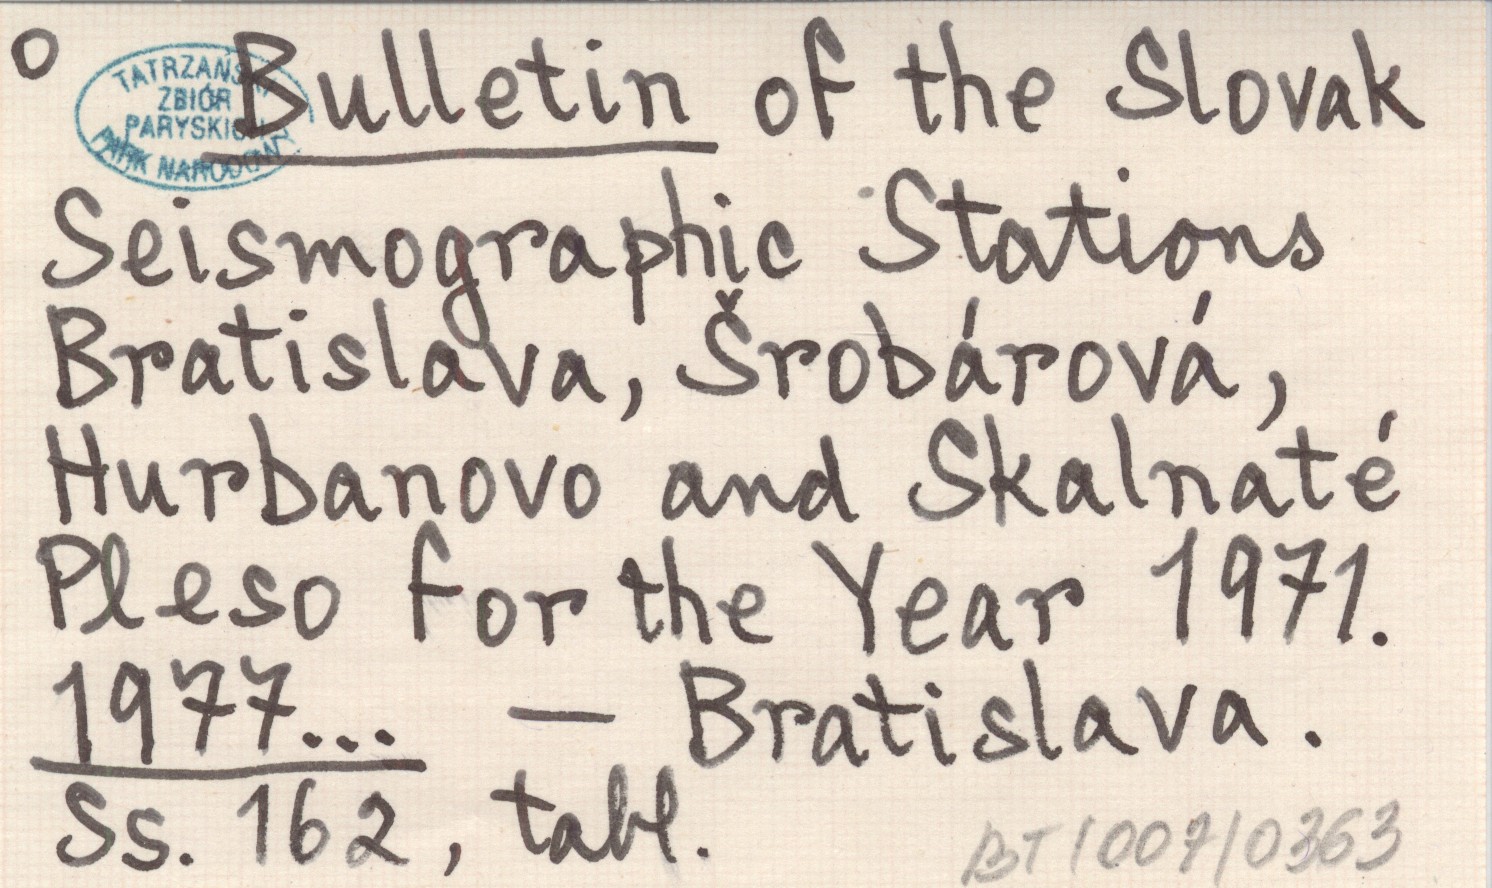 o Bulletin of the Slovak
TATRZAŃSKI
ZBIÓR
PARYSKICH
PARK NARODOWY
Seismographic Stations
Bratislava, Šrobárová,
Hurbanovo and Skalnaté
Pleso for the Year 1971.
1977... — Bratislava.
Ss. 162, tabl.
BT/007/0363